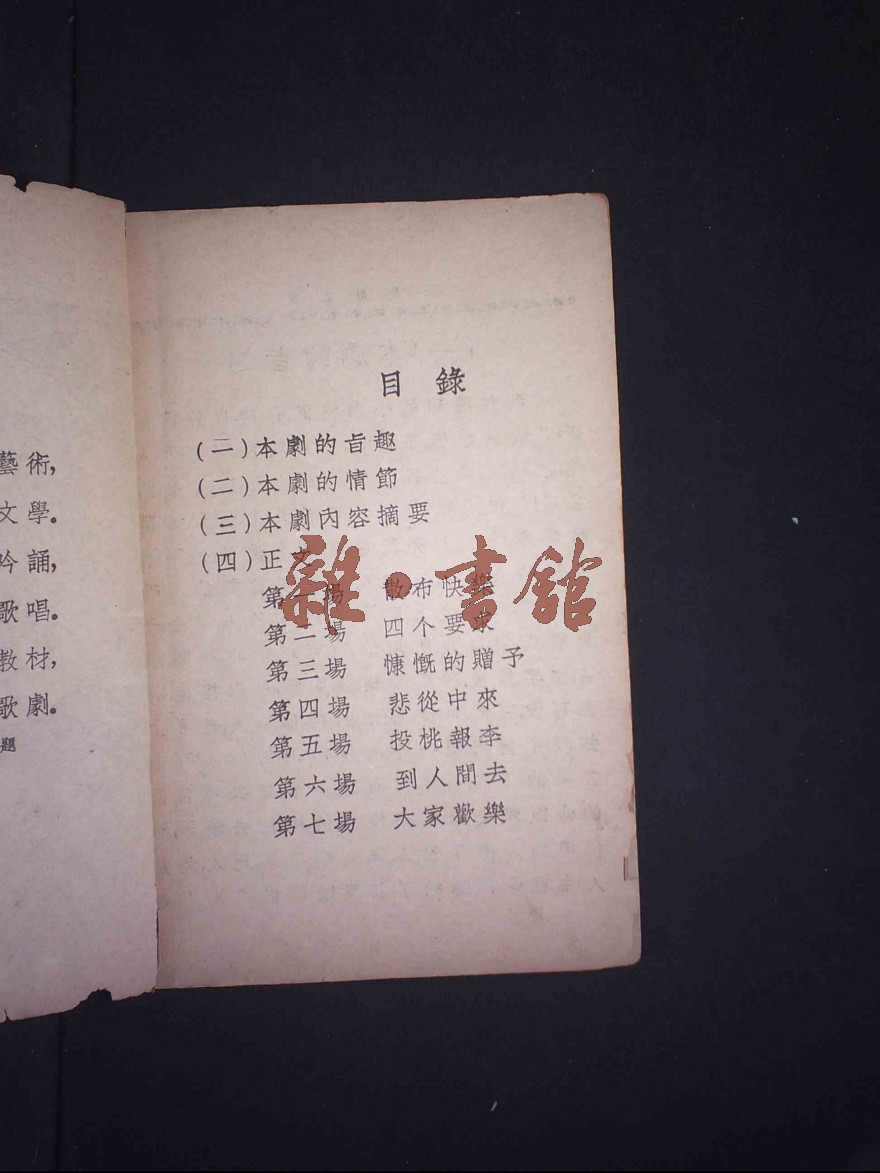 藝術,
文學。
吟誦,
歌唱。
教材,
歌劇。
題
目錄
(二)本劇的旨趣
(二)本劇的情節
(三)本劇內容摘要
(四)正文
第一場 散布快樂
第二場 四个要求
第三場 慷慨的贈予
第四場 悲從中來
第五場 投桃報李
第六場 到人間去
第七場 大家歡樂
雜·書館